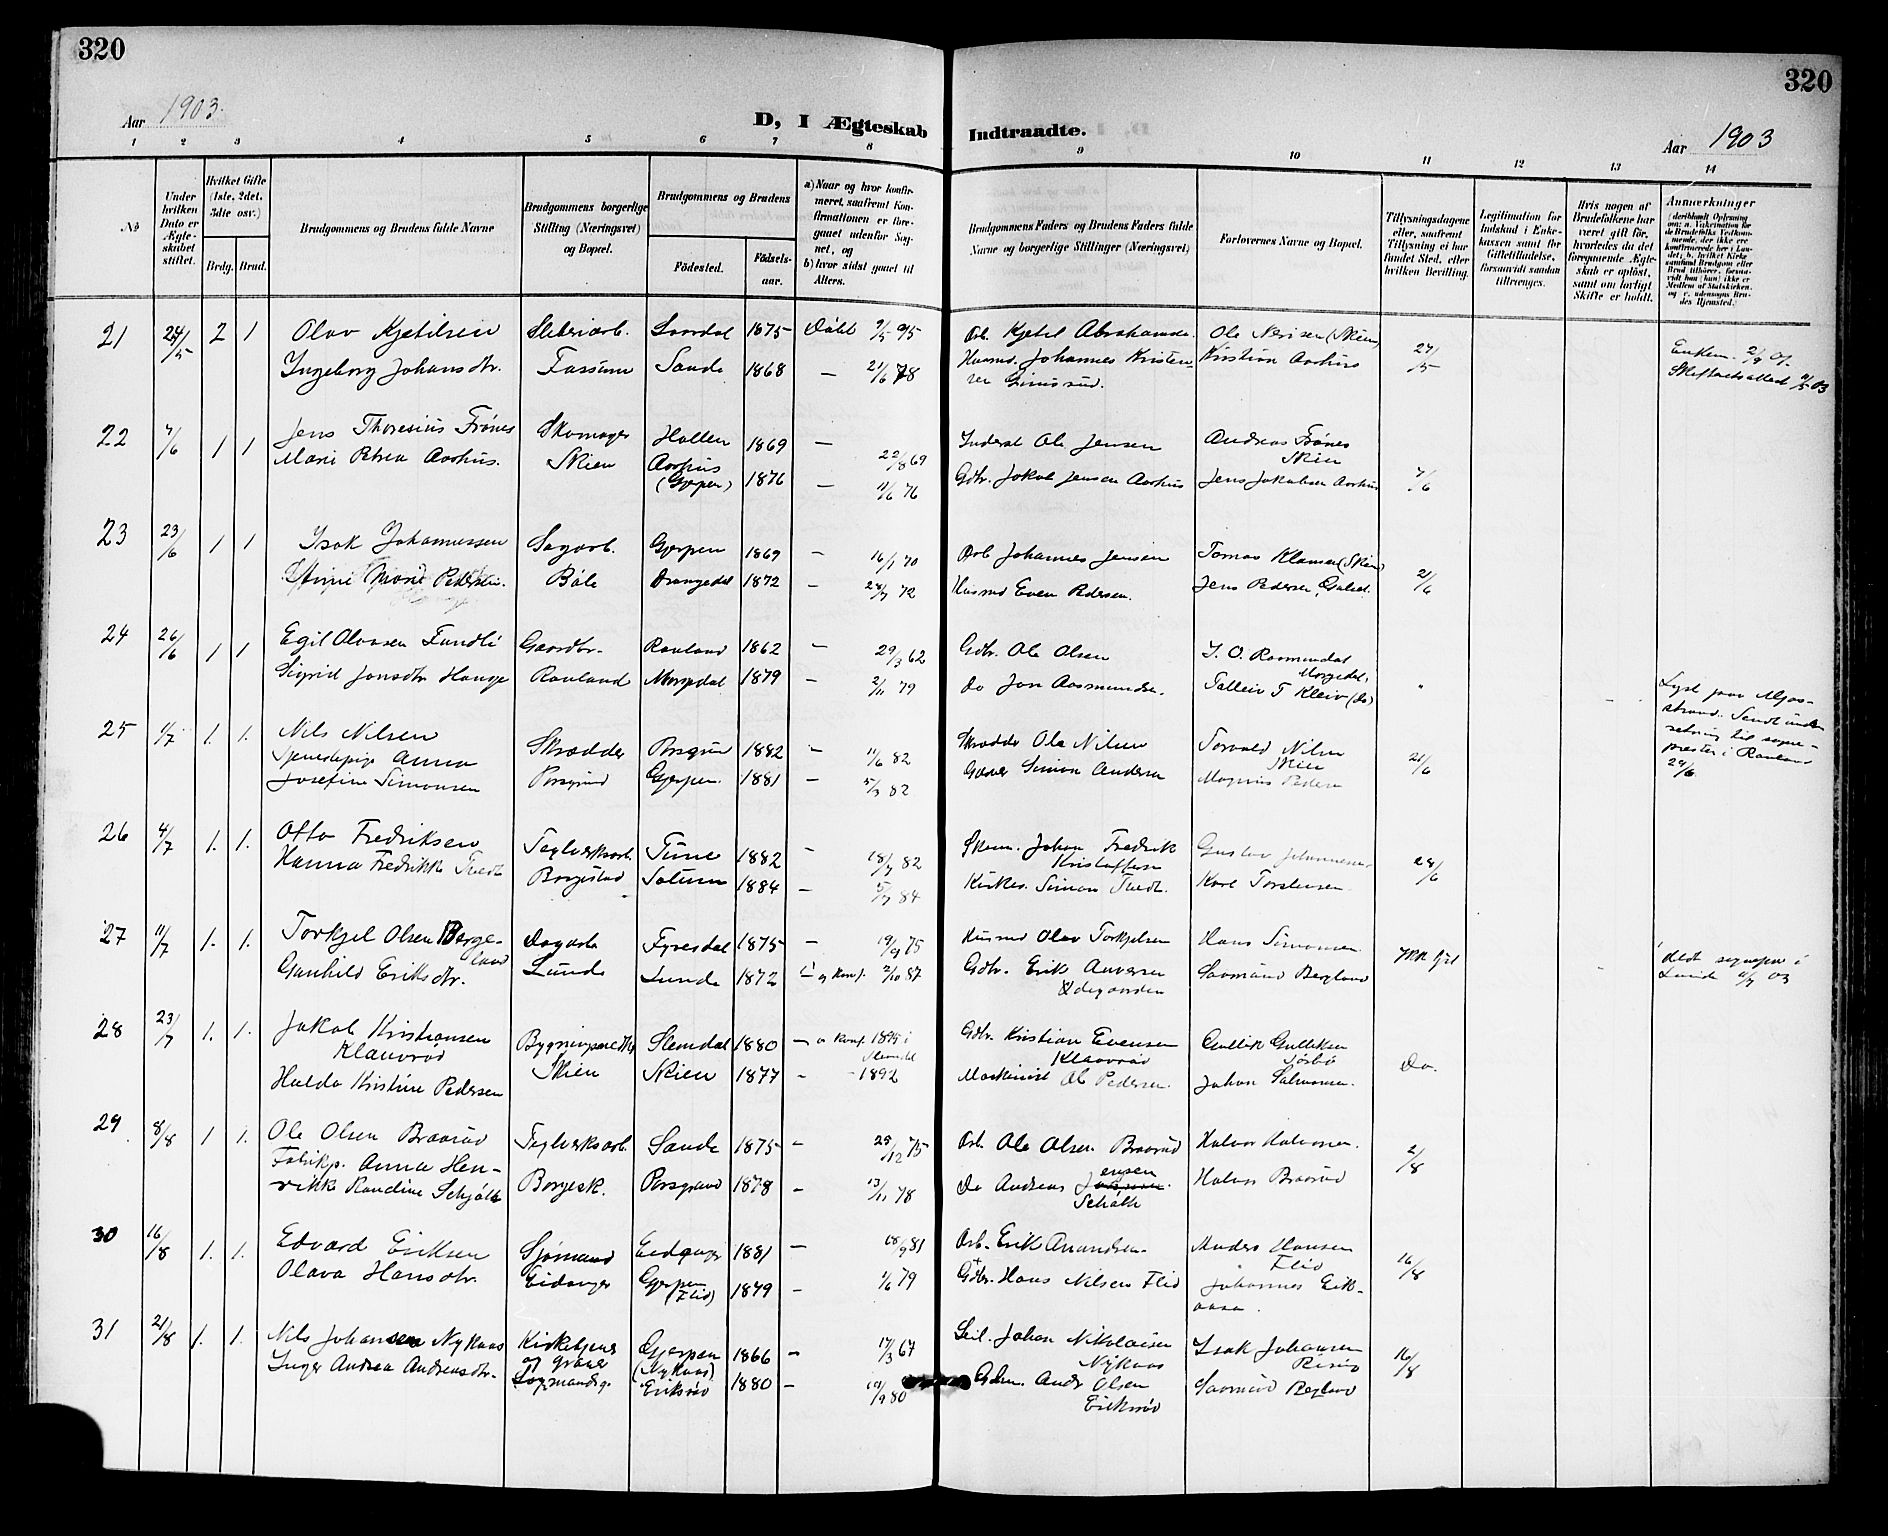 320
320
Aar 1903.
D, I Ægteskab
Indtraadte.
Aar 1903
1 2 3 4 5 6 7 8 9 10 11 12 13 14
No
Under hvilken Dato er Ægteskabet stiftet.
Hvilket Gifte (1ste, 2det, 3die osv.)
Brdg. Brud.
Brudgommens og Brudens fulde Navne
Brudgommens borgerlige Stilling (Næringsvei) og Bopæl.
Brudgommens og Brudens
Födested.
Födselsaar.
a) Naar og hvor konfirmeret, saafremt Konfirmationen er foregaaet udenfor Sognet, og
b) hvor sidst gaaet til Alters.
Brudgommens Faders og Brudens Faders fulde Navne og borgerlige Stillinger (Næringsvei)
Forlovernes Navne og Bopæl.
Tillysningsdagene eller, saafremt Tillysning ei har fundet Sted, efter hvilken Bevilling.
Legitimation for Indskud i Enkekassen samt for Giftetilladelse, forsaavidt saadan tiltrænges.
Hvis nogen af Brudefolkene har været gift för, hvorledes da det foregaaende Ægteskab er oplöst, samt om lovligt Skifte er holdt.
Anmærkninger
21 24/5 2 1 Olav Kjetilsen Sliberiarb. Laardal 1875 Döbt 9/5 95 Arb. Kjetil Abrahams. Ole Nerisen (Skien) 24/5 Enkem. 2/9 01.
Ingeborg Johansdtr. Fossum Sande 1868 — 21/6 78 Husmd. Johannes Kristen- Kristian Aarhus Skifteattest 11/5 03
22 7/6 1 1 Jens Thoresius Frönes Skomager Hollen 1869 — 22/8 69 Inderst Ole Jensen Andreas Frönes
Marie Petrea Aarhus. Skien Aarhus Skien
(Gjerpen) 1876 — 11/6 76 Gdbr. Jakob Jensen Aarhus Jens Jakobsen Aarhus 7/6
23 23/6 1 1 Isak Johannessen Sagarb. Gjerpen 1869 — 16/1 70 Arb. Johannes Jensen Tomas Klausen (Skien)
Anne Marie Pedersen. Böle Drangedal 1872 — 28/7 72 Husmd Even Pedersen. Jens Pedersen, 21/6
24 26/6 1 1 Egil Olavsen Fundli Gaardbr. Rauland 1862 — 29/3 62 Gdbr. Ole Olsen
Morgedal,
Sigrid Jonsdtr Hauge Rauland Morgedal 1879 — 2/11 79 Do Jon Aasmundsen. Talleiv T Kleiv (do) "
Lyst paa Mjös-
strand. Sendt under-
retning til sogne-
prester i Rauland
29/6
25 1/7 1. 1. Nils Nilsen Skrædder Porsgrun 1882 — 11/6 82 Skrædder Ole Nilsen Torvald Nilsen
Tjenestepige Anna Skien 21/6
Josefine Simonsen Porsgrund Gjerpen. 1881 — 5/3 82 Simon Andersen Magnus Pedersen
26 4/7 1. 1. Otto Fredriksen Teglverksarb. Tune 1882 — 18/7 82 Johan Fredrik Gustav Johannesen
Hanna Fredrikke Tvedt Kristoffersen 28/6
Borgestad Solum 1884 — 5/7 84 Simon Tvedt. Karl Torstensen.
27 11/7 1. 1. Torkjel Olsen Berge- Dagarb Fyresdal 1875 — 19/9 75 Husmd Olav Torkjelsen Hans Simonsen.
land
Gunhild Eriksdtr. Lunde Lunde 1872 og konf. 2/10 87 Gdbr. Erik Anversen Saamund Bergland
Ödegaarden
Lunde 11/7 03
28 23/7 1. 1. Jakob Kristiansen Slemdal 1880 — o konf. 1895 i Gdbr. Kristian Evensen Gullik Gulliksen
Klauvröd Slemdal Klauvröd
Hulda Kristine Pedersen Skien Skien 1877 — - 1892 Maskinist Ole Pedersen. Johan Salomonsen. Do.
29 8/8 1 1. Ole Olsen Braaröd Teglverksarb. Sande 1875 — 28/12 75 Arb. Ole Olsen Braaröd Halvor Halvorsen. 2/8
Fabrikp. Anna Hen- ensen
rikke Randine Schjölt Borgesk. Porsgrund 1878 — 13/11 78 Do Andreas Halvor Braaröd
Schölth
30 16/8 1. 1. Edvard Eriksen Sjömand Eidanger 1881 — 18/9 81 Arb. Erik Amundsen. Anders Hansen
Flid 16/8
Olava Hansdtr. Eidanger Gjerpen (Flid) 1879 — 1/6 79 Gdbr. Hans Nilsen Flid Johannes Eik-
aasa.
31 21/8 1. 1. Nils Johansen Nykaas Kirketjener og graver Gjerpen (Nykaas) 1866 — 17/3 67 Seil. Johan Nikolaisen Isak Johansen
Nykaas Rising 16/8
Inger Andrea Andreasdtr. Lögmandsg. Eriksröd 1880 — 19/9 80 Andr Olsen Saamund Bergland
Eriksröd